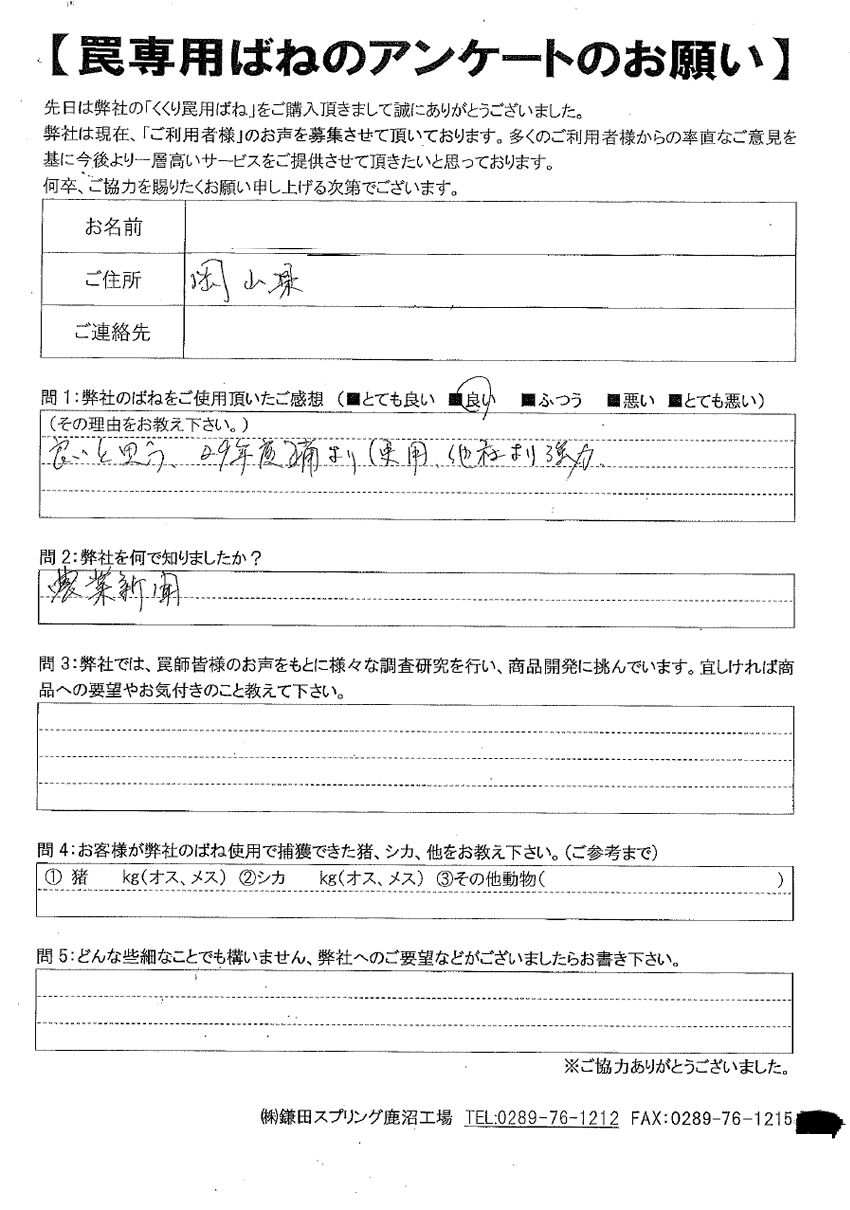 【罠専用ばねのアンケートのお願い】
先日は弊社の「くくり罠用ばね」をご購入頂きまして誠にありがとうございました。
弊社は現在、「ご利用者様」のお声を募集させて頂いております。多くのご利用者様からの率直なご意見を
基に今後より一層高いサービスをご提供させて頂きたいと思っております。
何卒、ご協力を賜りたくお願い申し上げる次第でございます。
お名前
ご住所 岡山県
ご連絡先
問1:弊社のばねをご使用頂いたご感想 (■とても良い ■良い ■ふつう ■悪い ■とても悪い)
(その理由をお教え下さい。)
良いと思う、29年度 より使用、他社より強力。
問2:弊社を何で知りましたか?
農業新聞
問3:弊社では、罠師皆様のお声をもとに様々な調査研究を行い、商品開発に挑んでいます。宜しければ商
品への要望やお気付きのこと教えて下さい。
問4:お客様が弊社のばね使用で捕獲できた猪、シカ、他をお教え下さい。(ご参考まで)
① 猪 kg(オス、メス) ②シカ kg(オス、メス) ③その他動物( )
問5:どんな些細なことでも構いません、弊社へのご要望などがございましたらお書き下さい。
※ご協力ありがとうございました。
㈱鎌田スプリング鹿沼工場 TEL:0289-76-1212 FAX:0289-76-1215